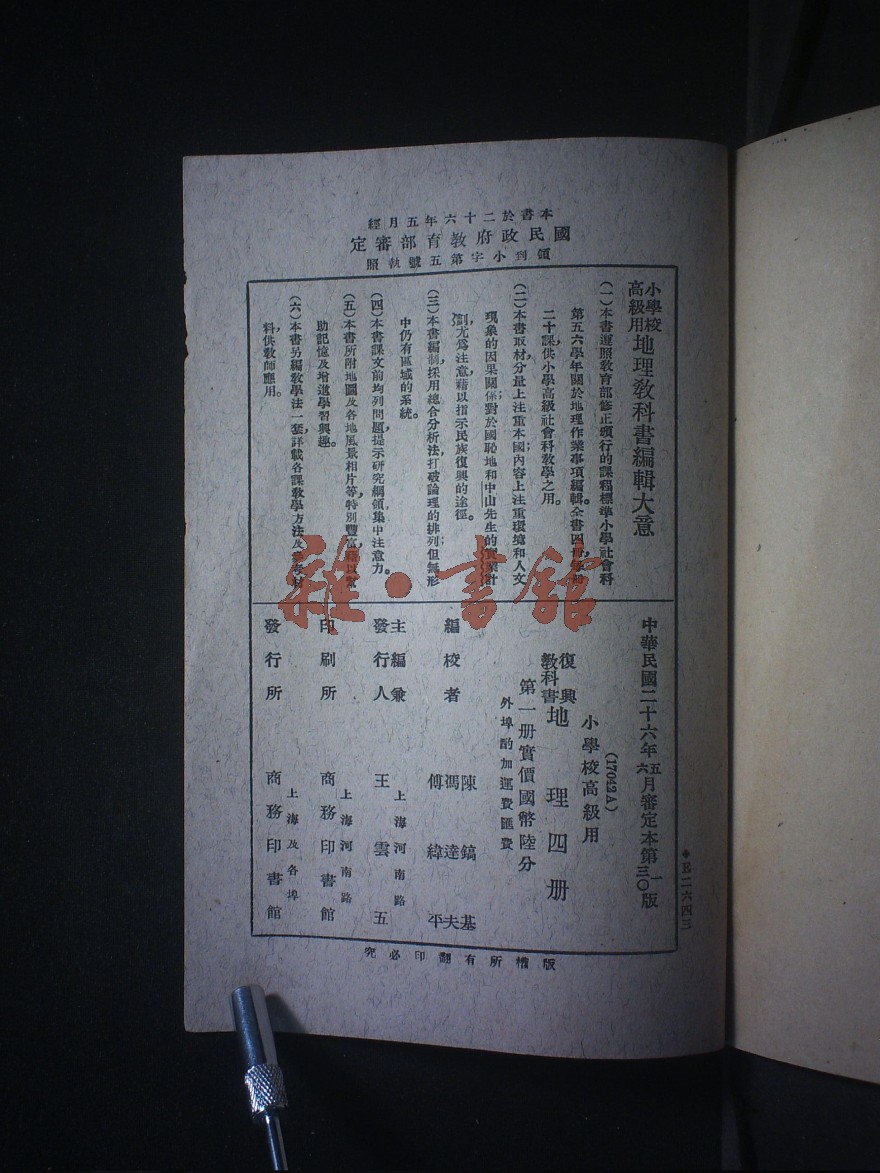 本書於二十六年五月經
國民政府教育部審定
領到小字第五號執照
小學校
高級用
地理教科書編輯大意
(一)本書遵照教育部修正頒行的課程標準小學社會科
第五六學年關於地理作業事項編輯,全書四冊,每冊
二十課,供小學高級社會科教學之用。
(二)本書取材,分量上注重本國;內容上注重環境和人文
現象的因果關係;對於國恥地和中山先生的實業計
劃,尤為注意,藉以指示民族復興的途徑。
(三)本書編制,採用總合分析法,打破論理的排列;但無形
中仍有區域的系統。
(四)本書課文前均列問題,提示研究綱領,集中注意力。
(五)本書所附地圖及各地風景相片等,特別豐富,藉以幫
助記憶及增進學習興趣。
(六)本書另編教學法一套,詳載各課教學方法及參考材
料,供教師應用。
中華民國二十六年五月審定本第一版
六 三〇
(17042A)
小學校高級用
復興
教科書
地理四冊
第一冊實價國幣陸分
外埠酌加運費匯費
編校者
陳鎬基
馮達夫
傅緯平
主編兼
發行人
上海河南路
王雲五
印刷所
上海河南路
商務印書館
發行所
上海及各埠
商務印書館
版權所有翻印必究
◆E二六四三
雜·書館